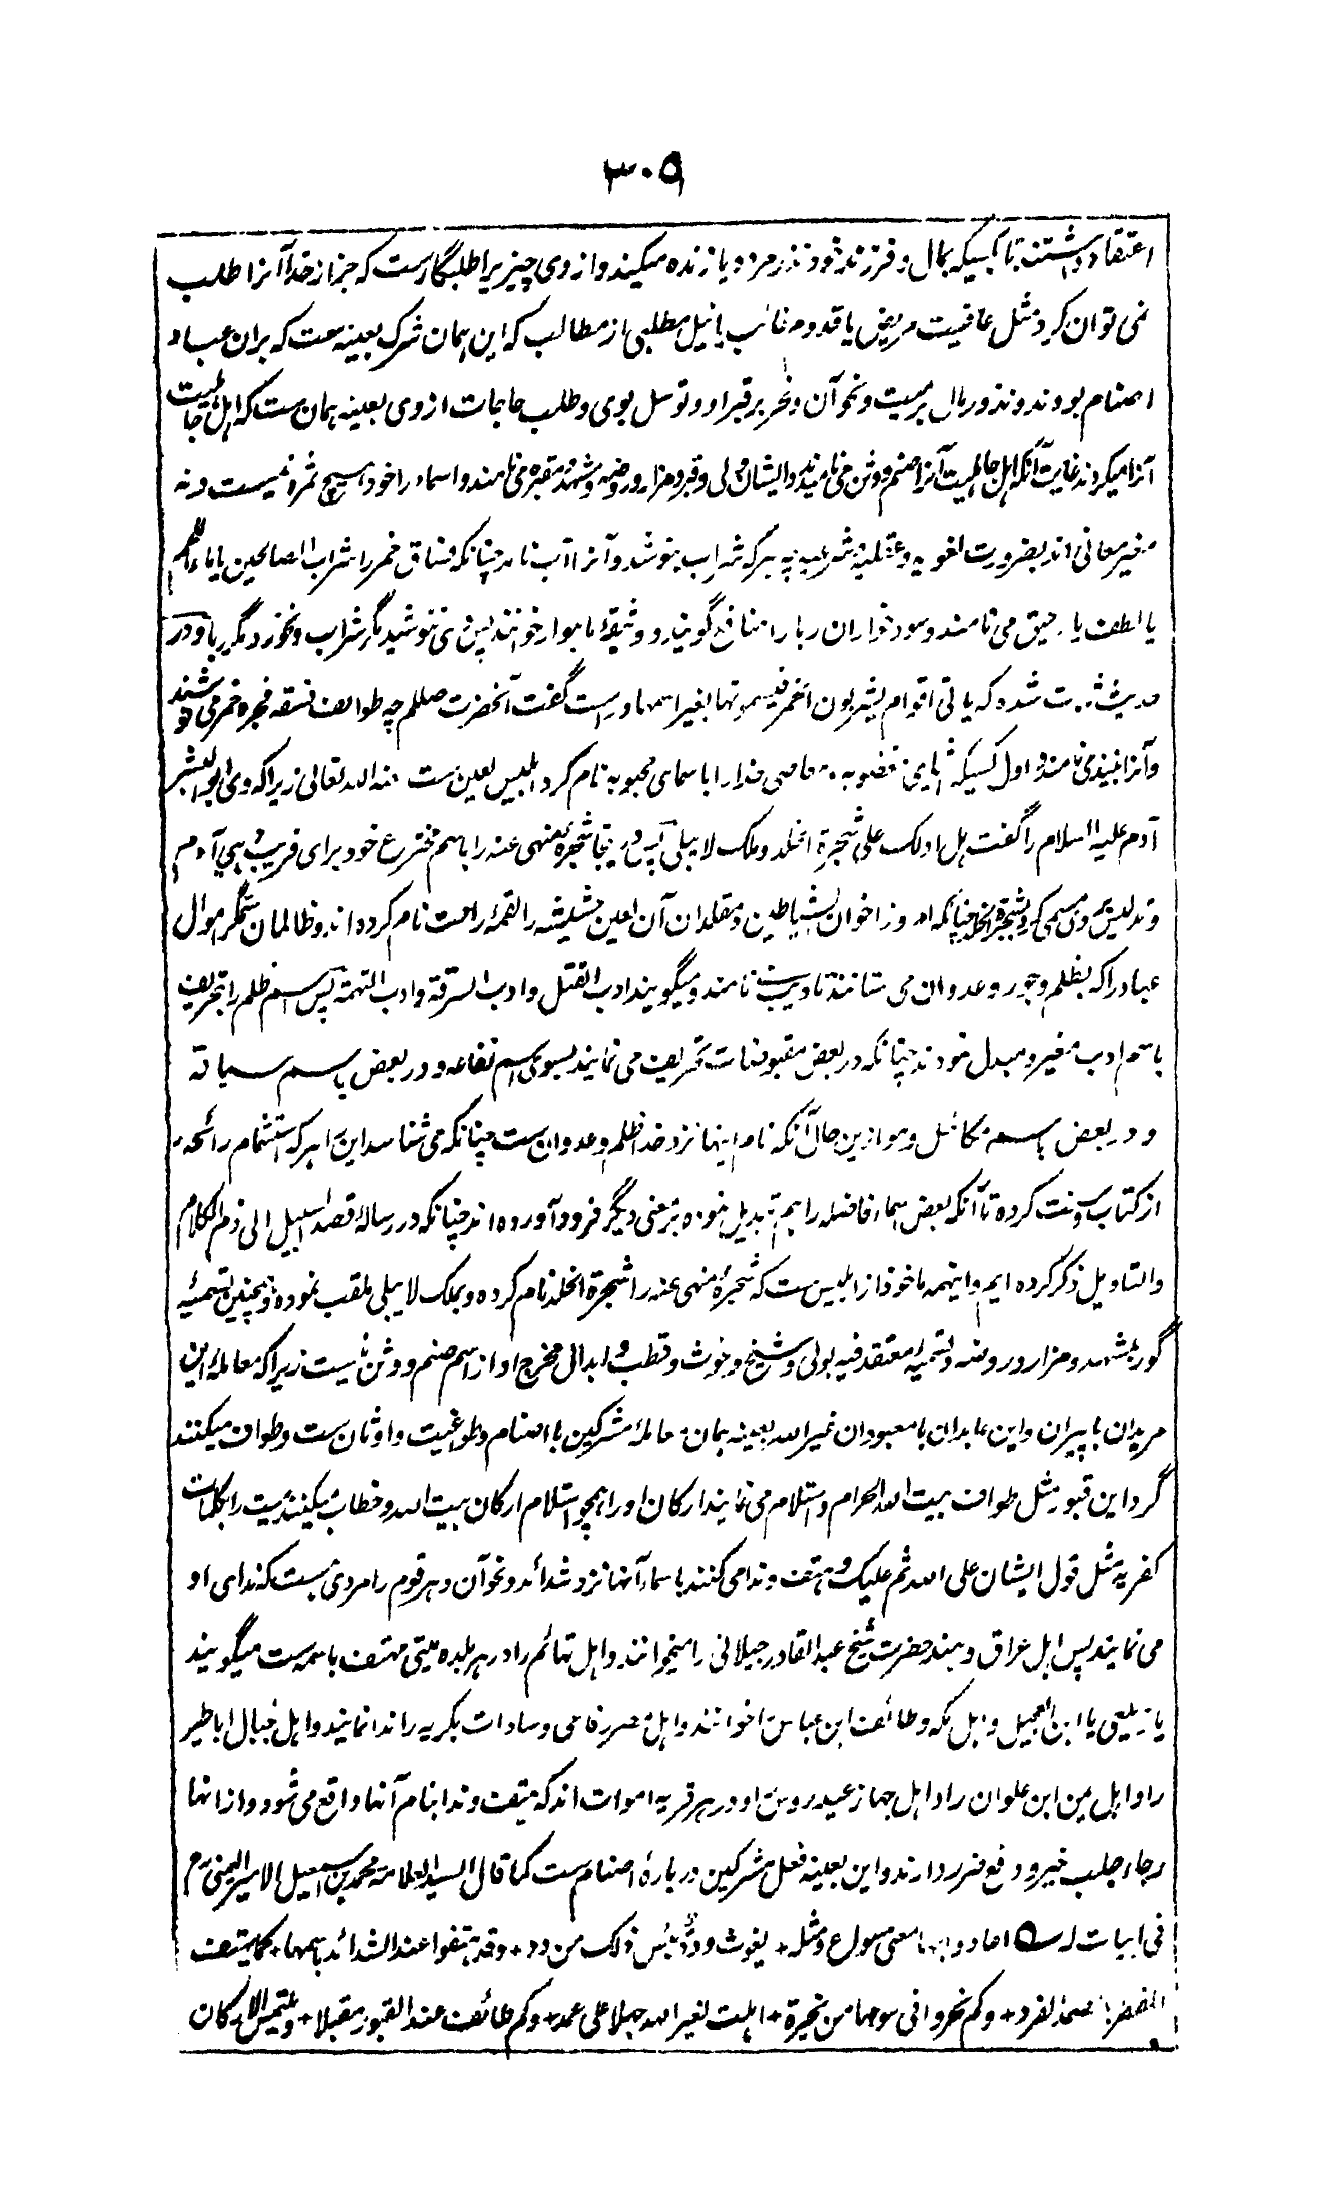 ۳۰۵
اعتقاد داشتن تا بکسیکه بمال و فرزند خود نذر مرده یا زنده میکند و از وی چیزیرا طلبگارست که جز از خدا آنرا طلب
نمی توان کرد مثل عافیت مریض یا قدوم غائب یا نیل مطلبی از مطالب که این همان شرک بعینه ست که بران عباد
اصنام بودند و نذور بمال بر میت و نحو آن و نحر بر قبر او و توسل بوی و طلب حاجات از وی بعینه همان ست که اهل جاهلیت
آنرا میکردند غایت آنکه اهل جاهلیت آنرا صنم و وثن می نامیدند و ایشان ولی و قبر و مزار و روضه و مشهد و مقبره می نامند و اسماء را خود هیچ ثمره نیست و نه
مغیر معانی اند بضرورت لغویه و عقلیه و شرعیه چه هر که شراب بنوشد و آنرا آب نامد چنانکه فساق خمر را شراب الصالحین یا ماء اللحم
یا لطف یا رحیق می نامند و سود خواران ربا را منافع گویند و وثیقه یا هوار خوانند پس وی ننوشید مگر شراب و نخورد مگر ربا و در
حدیث ثابت شده که یاتی اقوام یشربون الخمر فیسمونها بغیر اسمها و راست گفت آنحضرت صللم چه طوایف فسقه فجره خمر می نوشند
و آنرا نبیذ می نامند و اول کسیکه اشیای مغضوبه و معاصی خدا را باسمای محبوبه نام کرد ابلیس لعین ست لعنه الله تعالی زیرا که وی ابو البشر
آدم علیه السلام را گفت هل ادلک علی شجرة الخلد و ملک لا یبلی پس در ینجا شجره منهی عنه را باسم مخترع خود برای فریب بنی آدم
و تدلیس وی مسمی کرد بشجرة الخلد چنانکه اخوان الشیاطین و مقلدان آن لعین حشیشه را لقمه راحت نام کرده اند و ظالمان ستمگر اموال
عباد را که بظلم و جور و عدوان می ستانند تادیب نامند و میگویند ادب القتل و ادب السرقة و ادب التهمة پس اسم ظلم را بتحریف
باسم ادب مغیر و مبدل نمودند چنانکه در بعض مقبوضات تحریف می نمایند بسوی اسم نفاعه و در بعض باسم سیاقة
و در بعض باسم مکائل و موازین حال آنکه نام اینها نزد خدا ظلم و عدوان ست چنانکه می شناسد این را هر که استشمام رائحه
از کتاب و سنت کرده تا آنکه بعض اسماء فاضله را هم تبدیل نموده بر معنی دیگر فرود آورده اند چنانکه در رسالهٔ قصد السبیل الی ذم الکلام
والتاویل ذکر کرده ایم و اینهمه ماخوذ از ابلیس ست که شجرهٔ منهی عنه را شجرة الخلد نام کرده و بملک لا یبلی ملقب نموده و همچنین تسمیهٔ
گور بمشهد و مزار و روضه و تسمیهٔ معتقد فیه بولی و شیخ و غوث و قطب و ابدال مخرج او از اسم صنم و وثن نیست زیرا که معاملهٔ این
مریدان با پیران و این عابدان با معبودان غیر الله بعینه همان معاملهٔ مشرکین با اصنام و طواغیت و اوثان ست و طواف میکنند
گرد این قبور مثل طواف بیت الله الحرام و استلام می نمایند ارکان او را همچو استلام ارکان بیت الله و خطاب میکنند میت را بکلمات
کفریه مثل قول ایشان علی الله ثم علیک و هتف و ندا می کنند باسماء آنها نزد شدائد و نحو آن و هر قوم را مردی هست که ندای او
می نمایند پس اهل عراق و هند حضرت شیخ عبد القادر جیلانی را میخوانند و اهل تهائم را در هر بلده میتی مهتف باسم ست میگویند
یا زیلعی یا ابن العجیل و اهل مکه و طائف ابن عباس را خوانند و اهل مصر رفاعی و سادات بکریه را ندا نمایند و اهل جبال ابا طیر
را و اهل یمن ابن علوان را و اهل حجاز عیدروس را و در هر قریه اموات اند که هتف و ندا بنام آنها واقع می شود و از انها
رجاء جلب خیر و دفع ضرر دارند و این بعینه فعل مشرکین دربارهٔ اصنام ست کما قال السید العلامه محمد بن اسمعیل الامیر الیمنی رح
فی ابیات له ۵ اعادوا بها معنی سواع و مثله + یغوث و ود بئس ذلک من ود + و قد هتفوا عند الشدائد باسمها + کما یهتف
المضطر بالصمد الفرد + و کم نحروا فی سوحها من نحیرة + اهلت لغیر الله جهلا علی عمد + و کم طائف عند القبور مقبلا + و یلتمس الارکان